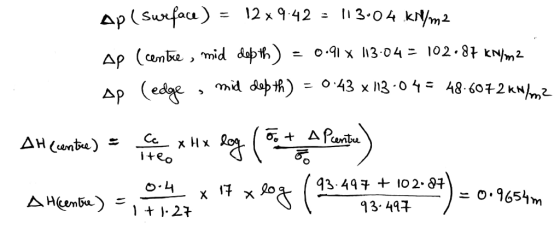 Δp (surface) = 12 x 9.42 = 113.04 kN/m2
Δp (centre, mid depth) = 0.91 x 113.04 = 102.87 kN/m2
Δp (edge, mid depth) = 0.43 x 113.04 = 48.6072 kN/m2
ΔH (centre) = Cc/1+e0 x H x log (σ̅0 + ΔPcentre/σ̅0)
ΔH(centre) = 0.4/1+1.27 x 17 x log (93.497 + 102.87/93.497) = 0.9654m